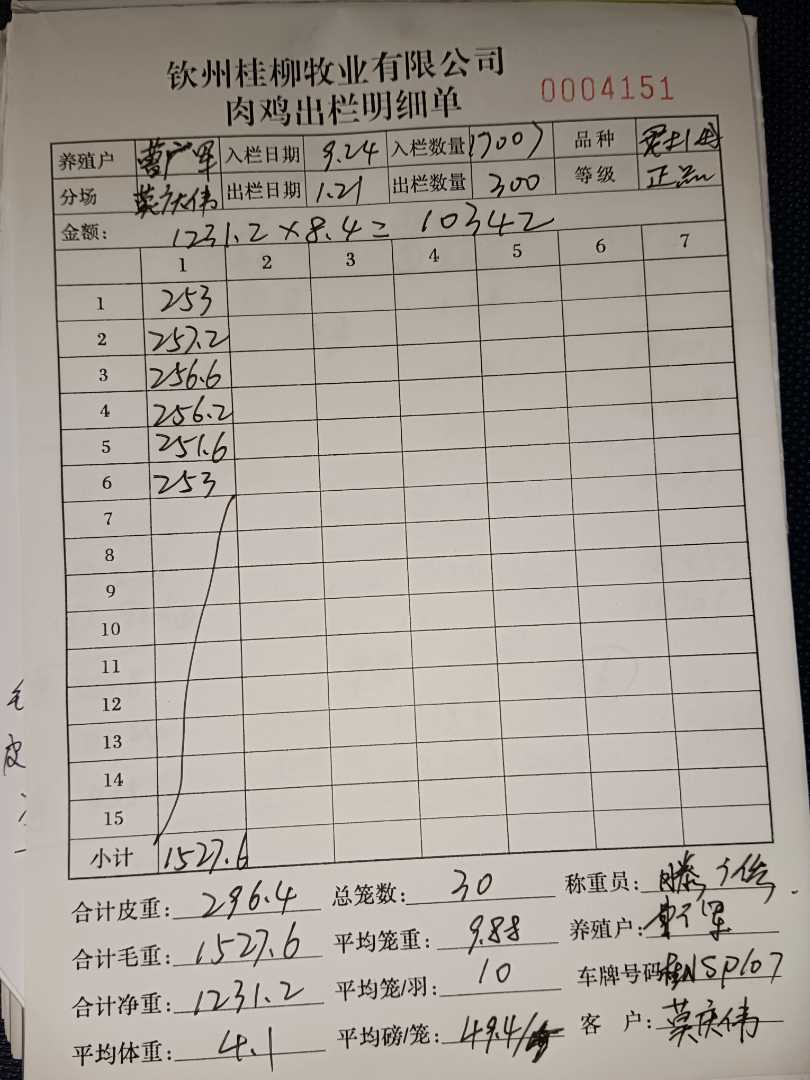 钦州桂柳牧业有限公司
肉鸡出栏明细单 0004151
养殖户 曹广军 入栏日期 9.24 入栏数量 17007 品种
分场 莫庆伟 出栏日期 1.21 出栏数量 300 等级 正品
金额: 1231.2×8.4= 10342
1 2 3 4 5 6 7
1 253
2 257.2
3 256.6
4 256.2
5 251.6
6 253
7
8
9
10
11
12
13
14
15
小计 1527.6
合计皮重: 296.4 总笼数: 30 称重员:
合计毛重: 1527.6 平均笼重: 9.88 养殖户: 曹广军
合计净重: 1231.2 平均笼/羽: 10 车牌号码 桂NSP107
平均体重: 4.1 平均磅/笼: 49.4/ 客 户: 莫庆伟
毛
皮